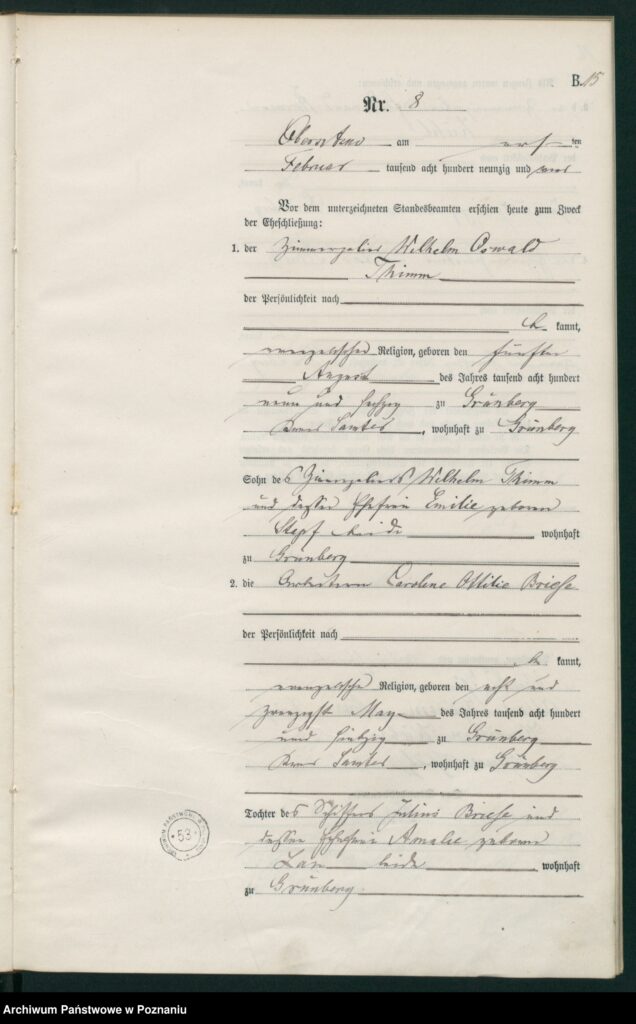 B. 15
Nr. 8
am ten
Februar tausend acht hundert neunzig und
Vor dem unterzeichneten Standesbeamten erschien heute zum Zweck
der Eheschließung:
1. der Wilhelm Oswald
Thimm
der Persönlichkeit nach
kannt,
evangelischer Religion, geboren den fünften
August des Jahres tausend acht hundert
neun und sechzig zu Grünberg
Kreis Samter, wohnhaft zu Grünberg
Sohn des Wilhelm Thimm
und dessen Ehefrau Emilie geborene
beide wohnhaft
zu Grünberg
2. die Caroline Ottilie Briese
der Persönlichkeit nach
kannt,
evangelische Religion, geboren den acht und
zwanzigsten May des Jahres tausend acht hundert
und zu Grünberg
Kreis Samter, wohnhaft zu Grünberg
Tochter des Schiffers Julius Briese und
dessen Ehefrau Amalie geborene
beide wohnhaft
zu Grünberg
53
Archiwum Państwowe w Poznaniu